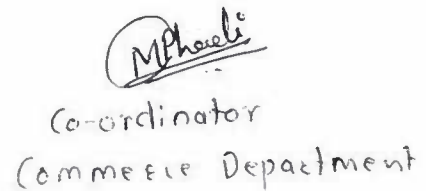 Co-ordinator
Commerce Department